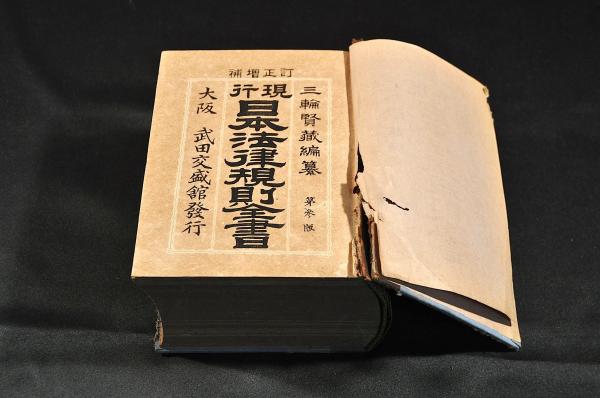 訂正増補
三輪賢蔵編纂
第参版
現行
日本法律規則全書
大阪 武田交盛舘發行